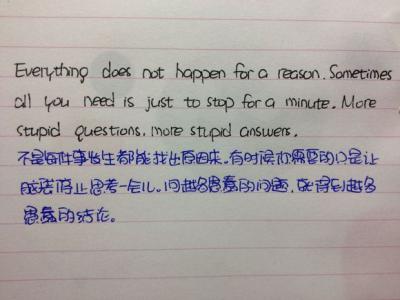 Everything does not happen for a reason. Sometimes
all you need is just to stop for a minute. More
stupid questions, more stupid answers.
不是每件事发生都能找出原因来。有时候你需要的只是让
脑袋停止思考一会儿。问越多愚蠢的问题，就得到越多
愚蠢的结论。